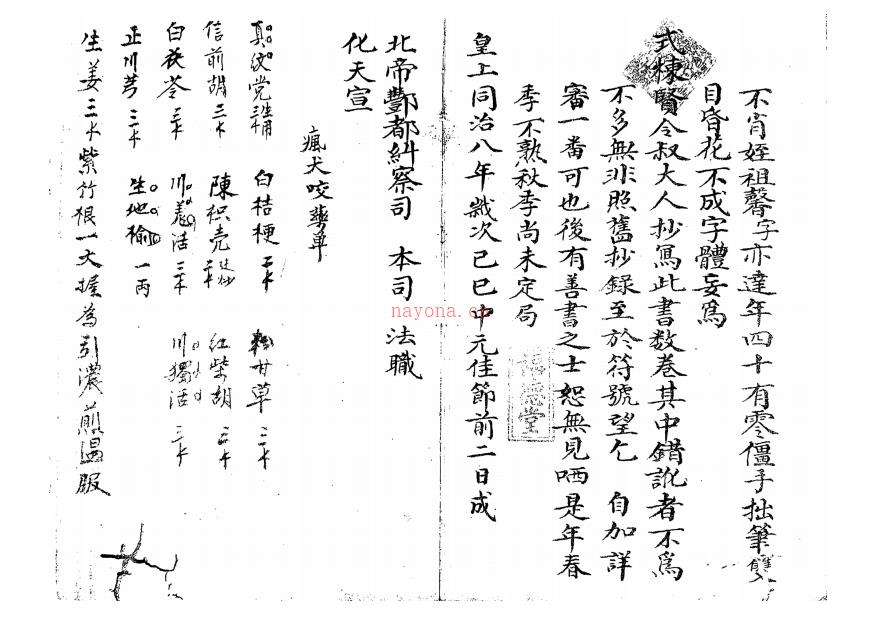 不肖姪祖馨字亦達年四十有零僵手拙筆雙
目昏花不成字體妄為
式棟賢令叔大人抄寫此書数卷其中錯訛者不為
不多無非照舊抄錄至於符號望乞 自加詳
審一番可也後有善書之士恕無見哂是年春
季不熟秋季尚未定局
福德堂
皇上同治八年歲次己巳中元佳節前二日成
北帝酆都糾察司 本司 法職
化天宣
瘋犬咬藥单
真纹党三 白桔梗 二 甘草 三
信前胡 三 陳枳壳 红柴胡 三
白茯苓 三 川羌活 三 川獨活 三
正川芎 三 生地榆 一两
生姜三 紫竹根一大握為引濃煎温服
nayona.cn